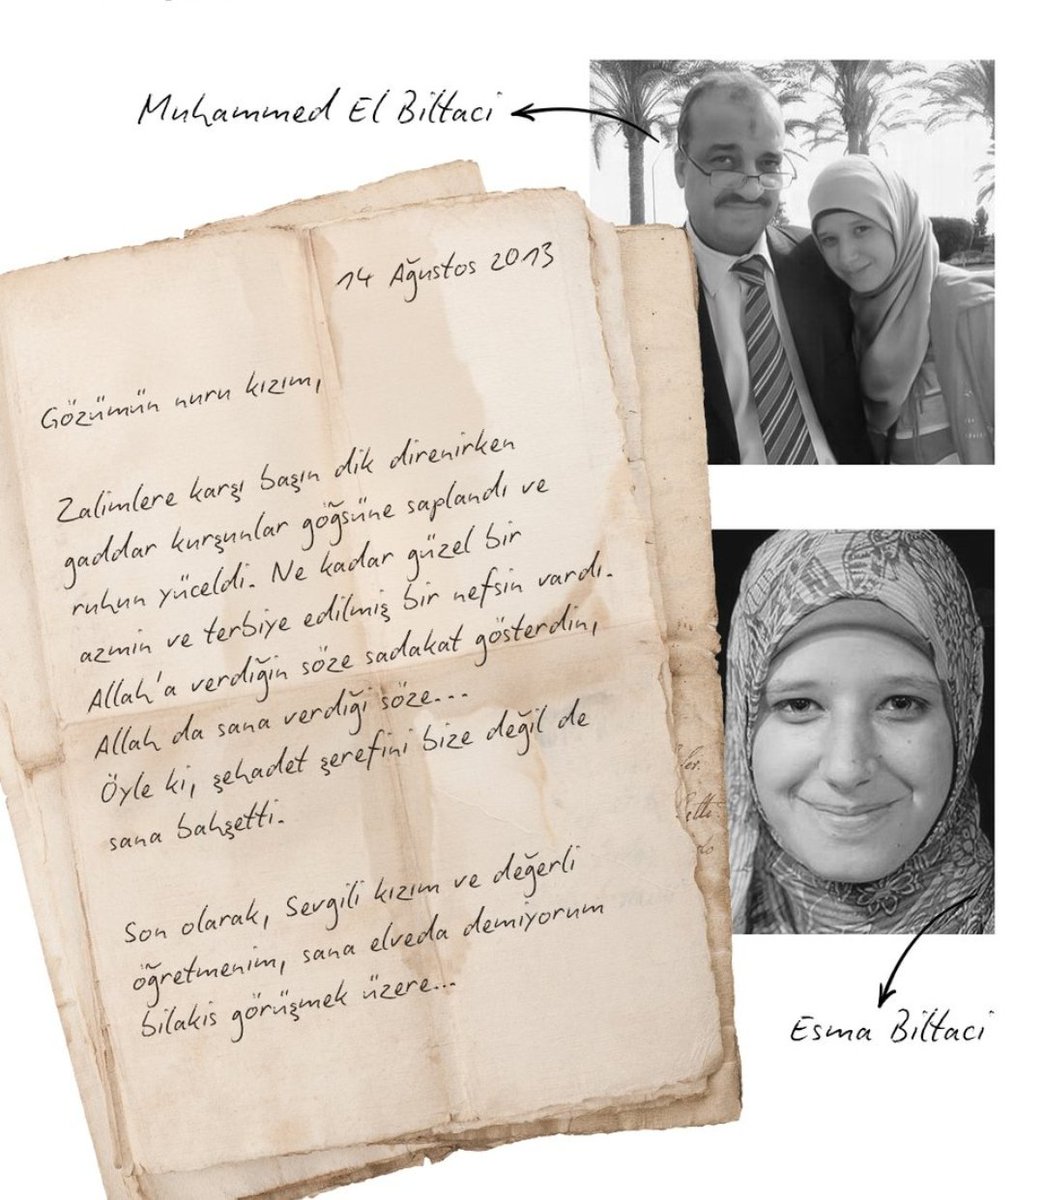 Muhammed El Biltaci
14 Ağustos 2013
Gözümün nuru kızım,
Zalimlere karşı başın dik direnirken
gaddar kurşunlar göğsüne saplandı ve
ruhun yüceldi. Ne kadar güzel bir
azmin ve terbiye edilmiş bir nefsin vardı.
Allah'a verdiğin söze sadakat gösterdin,
Allah da sana verdiği söze...
Öyle ki, şehadet şerefini bize değil de
sana bahşetti.
Son olarak, Sevgili kızım ve değerli
öğretmenim, sana elveda demiyorum
bilakis görüşmek üzere...
Esma Biltaci